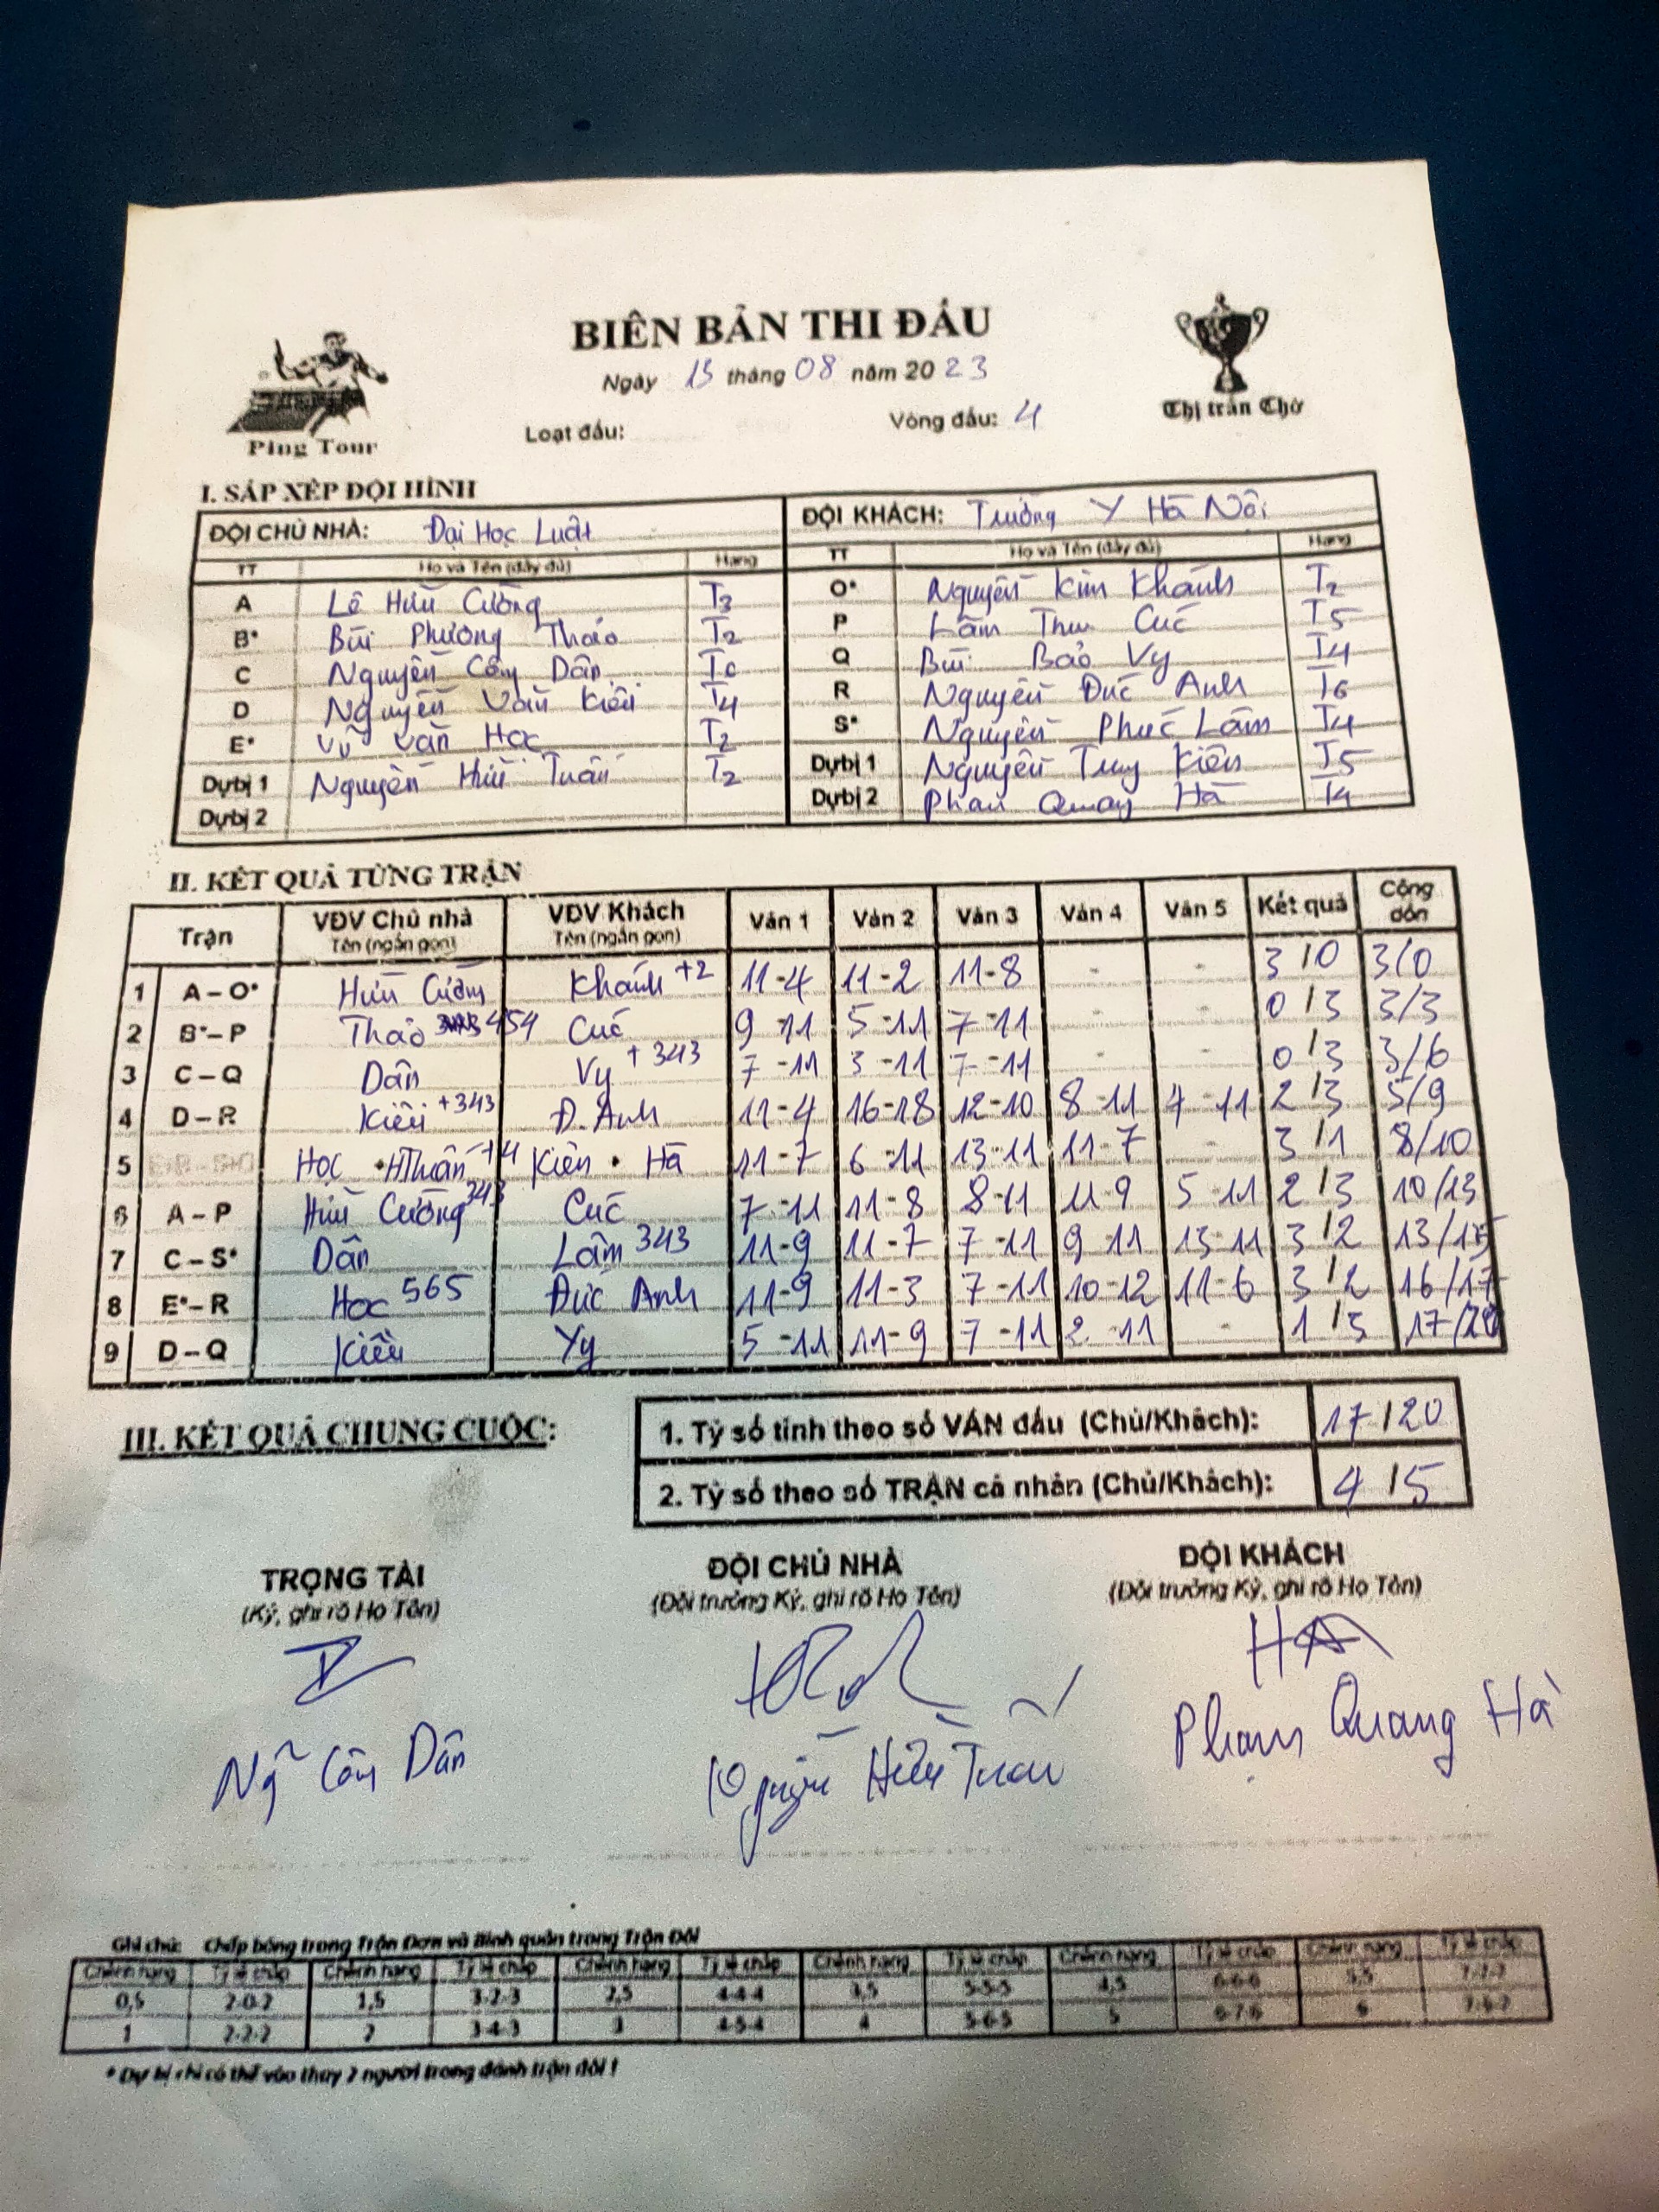 BIÊN BẢN THI ĐẤU
Ngày 13 tháng 08 năm 20 23
Ping Tour
Loạt đấu: Vòng đấu: 4
Thị trấn Chờ
I. SẮP XẾP ĐỘI HÌNH
ĐỘI CHỦ NHÀ: Đại Học Luật ĐỘI KHÁCH: Trường Y Hà Nội
TT Họ và Tên (đầy đủ) Hạng TT Họ và Tên (đầy đủ) Hạng
A Lê Hữu Cường T3 O* Nguyễn Kim Khánh T2
B* Bùi Phương Thảo T2 P Lâm Thu Cúc T5
C Nguyễn Công Dân T6 Q Bùi Bảo Vy T4
D Nguyễn Văn Kiều T4 R Nguyễn Đức Anh T6
E* Vũ Văn Học T2 S* Nguyễn Phúc Lâm T4
Dự bị 1 Nguyễn Hữu Tuấn T2 Dự bị 1 Nguyễn Trung Kiên T5
Dự bị 2 Dự bị 2 Phạm Quang Hà T4
II. KẾT QUẢ TỪNG TRẬN
Trận VĐV Chủ nhà Tên (ngắn gọn) VĐV Khách Tên (ngắn gọn) Ván 1 Ván 2 Ván 3 Ván 4 Ván 5 Kết quả Cộng dồn
1 A – O* Hữu Cường Khánh +2 11-4 11-2 11-8 - - 3/0 3/0
2 B* – P Thảo 454 Cúc 9-11 5-11 7-11 - - 0/3 3/3
3 C – Q Dân Vy +343 7-11 3-11 7-11 - - 0/3 3/6
4 D – R Kiều +343 Đ. Anh 11-4 16-18 12-10 8-11 4-11 2/3 5/9
5 Học • HTuấn +4 Kiên • Hà 11-7 6-11 13-11 11-7 - 3/1 8/10
6 A – P Hữu Cường 343 Cúc 7-11 11-8 8-11 11-9 5-11 2/3 10/13
7 C – S* Dân Lâm 343 11-9 11-7 7-11 9-11 13-11 3/2 13/15
8 E* – R Học 565 Đức Anh 11-9 11-3 7-11 10-12 11-6 3/2 16/17
9 D – Q Kiều Vy 5-11 11-9 7-11 2-11 - 1/3 17/20
III. KẾT QUẢ CHUNG CUỘC:
1. Tỷ số tính theo số VÁN đấu (Chủ/Khách): 17/20
2. Tỷ số theo số TRẬN cá nhân (Chủ/Khách): 4/5
TRỌNG TÀI ĐỘI CHỦ NHÀ ĐỘI KHÁCH
(Ký, ghi rõ Họ Tên) (Đội trưởng Ký, ghi rõ Họ Tên) (Đội trưởng Ký, ghi rõ Họ Tên)
HA
Ng Công Dân Nguyễn Hữu Tuấn Phạm Quang Hà
Ghi chú: Chấp bóng trong Trận Đơn và Bình quân trong Trận Đôi
Chênh hạng Tỷ lệ chấp Chênh hạng Tỷ lệ chấp Chênh hạng Tỷ lệ chấp Chênh hạng Tỷ lệ chấp Chênh hạng Tỷ lệ chấp Chênh hạng Tỷ lệ chấp
0,5 2-0-2 1,5 3-2-3 2,5 4-4-4 3,5 5-5-5 4,5 6-6-6 5,5 7-7-7
1 2-2-2 2 3-4-3 3 4-5-4 4 5-6-5 5 6-7-6 6
* Dự bị chỉ có thể vào thay 2 người trong đánh trận đôi !